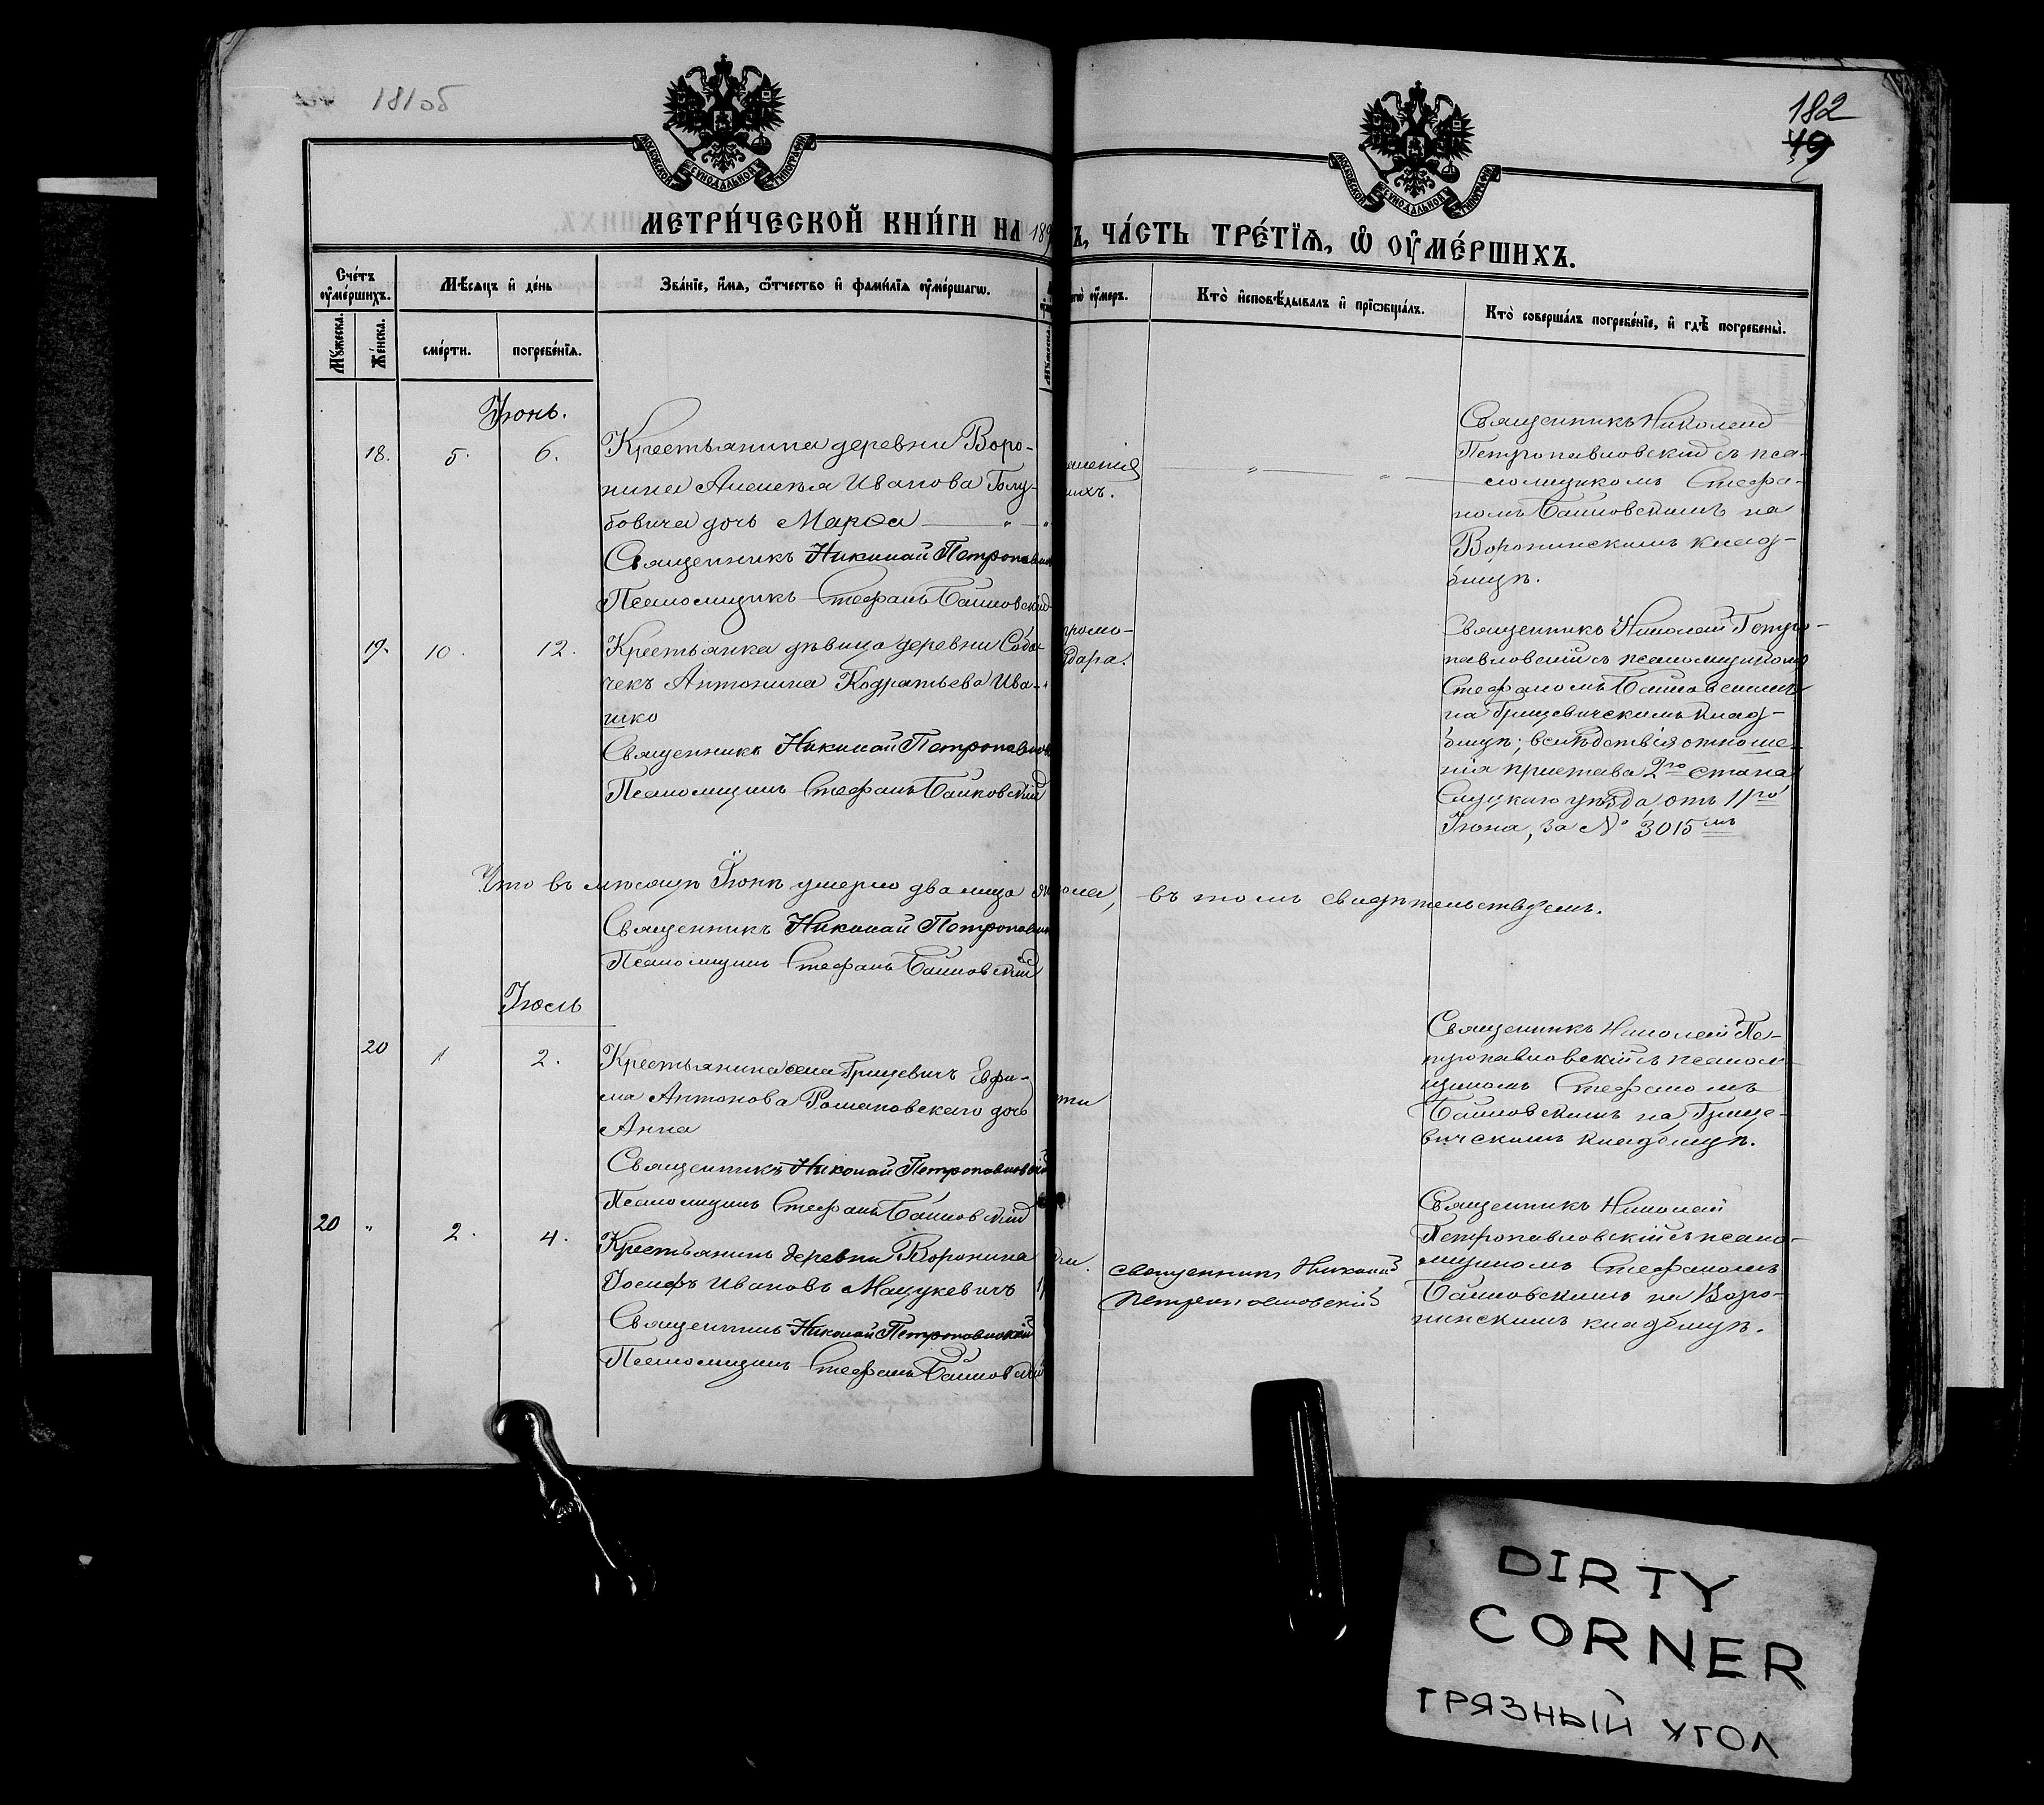 181об
182
49
МОСКОВСКОЙ СѴНОДАЛЬНОЙ ТИПОГРАФІИ
МОСКОВСКОЙ СѴНОДАЛЬНОЙ ТИПОГРАФІИ
МЕТРИ́ЧЕСКОЙ КНИ́ГИ НА 189
Ъ, ЧА́СТЬ ТРЕ́ТЇѦ, Ѡ ОУ҆МЕ́РШИХЪ.
Сче́тъ оу҆ме́ршихъ.
Мѣ́сяцъ и҆ де́нь
Зва́нїе, и҆́мѧ, ѻ҆́тчество и҆ фами́лїѧ оу҆ме́ршагѡ.
оу҆́меръ.
Кто̀ и҆сповѣ́дывалъ и҆ прїѡбща́лъ.
Кто̀ соверша́лъ погребе́нїе, и҆ гдѣ̀ погребены̀.
Мꙋ́жеска.
Же́нска.
сме́рти.
погребе́нїѧ.
Іюнь.
18.
5.
6.
Крестьянина деревни Воро-
нина Алексѣя Иванова Голу-
бовича дочь Марѳа
Священникъ Николай Петропавлов
Псаломщикъ Стефанъ Баиловскій
ихъ.
Священникъ Николай
Петропавловскій съ пса-
ломщикомъ Стефа-
номъ Баиловскимъ на
Воронинскомъ клад-
бищѣ.
19.
10.
12.
Крестьянка дѣвица деревни Соба-
чекъ Антонина Кодратьева Ива-
шко
Священникъ Николай Петропавлов
Псаломщикъ Стефанъ Баиловскій
дара.
Священникъ Николай Петро-
павловскій съ псаломщикомъ
Стефаномъ Баиловскимъ
на Грицевичскомъ клад-
бищѣ; вслѣдствія отноше-
нія пристава 2го стана
Слуцкаго уѣзда, отъ 11го
Іюня, за № 3015мъ
Что въ мѣсяцѣ Іюнѣ умерло два лица пола, въ томъ свидѣтельствуемъ.
Священникъ Николай Петропавлов
Псаломщикъ Стефанъ Баиловскій
Іюль
20
1
2.
Крестьянина села Грицевичъ Евфи-
ма Антонова Романовскаго дочь
Анна
Священникъ Николай Петропавловскій
Псаломщикъ Стефанъ Баиловскій
Священникъ Николай Пе-
тропавловскій съ псалом-
щикомъ Стефаномъ
Баиловскимъ на Грице-
вичскомъ кладбищѣ.
20
"
2.
4.
Крестьянинъ деревни Воронина
Іосифъ Ивановъ Мацукевичъ
Священникъ Николай Петропавловскій
Псаломщикъ Стефанъ Баиловскій
священникъ Николай
Петропавловскій
Священникъ Николай
Петропавловскій съ псало-
мщикомъ Стефаномъ
Баиловскимъ на Воро-
нинскомъ кладбищѣ.
DIRTY
CORNER
ГРЯЗНЫЙ УГОЛ